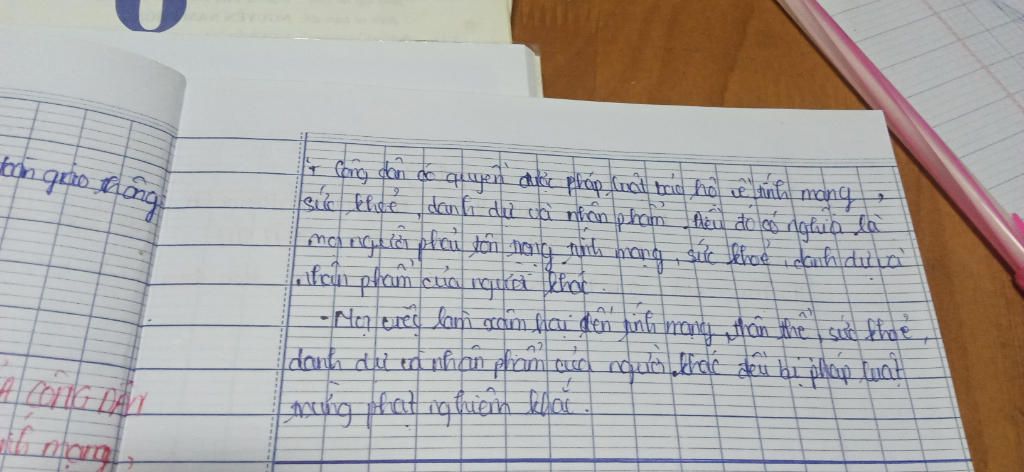 NGUYỄN NAM
toàn giao thông
+ Công dân có quyền được pháp luật bảo hộ về tính mạng,
sức khoẻ, danh dự và nhân phẩm. Điều đó có nghĩa là
mọi người phải tôn trọng tính mạng, sức khoẻ, danh dự và
nhân phẩm của người khác.
- Mọi việc làm xâm hại đến tính mạng, thân thể, sức khoẻ,
danh dự và nhân phẩm của người khác đều bị pháp luật
trừng phạt nghiêm khắc.
CÔNG DÂN
tính mạng,